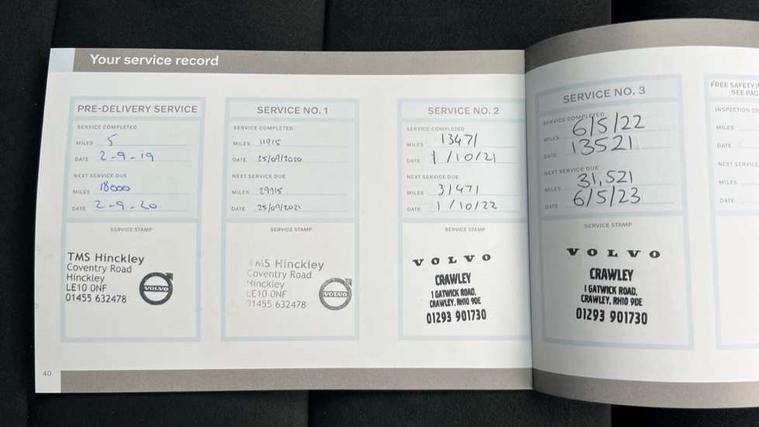 Your service record
PRE-DELIVERY SERVICE
SERVICE COMPLETED
MILES 5
DATE 2-9-19
NEXT SERVICE DUE
MILES 18000
DATE 2-9-20
SERVICE STAMP
TMS Hinckley
Coventry Road
Hinckley
LE10 0NF
01455 632478
VOLVO
SERVICE NO. 1
SERVICE COMPLETED
MILES 11915
DATE 25/09/2020
NEXT SERVICE DUE
MILES 29915
DATE 25/09/2021
SERVICE STAMP
TMS Hinckley
Coventry Road
Hinckley
LE10 0NF
01455 632478
VOLVO
SERVICE NO. 2
SERVICE COMPLETED
MILES 13471
DATE 1/10/21
NEXT SERVICE DUE
MILES 31471
DATE 1/10/22
SERVICE STAMP
VOLVO
CRAWLEY
1 GATWICK ROAD,
CRAWLEY, RH10 9DE
01293 901730
SERVICE NO. 3
SERVICE COMPLETED
MILES 6/5/22
DATE 13521
NEXT SERVICE DUE
MILES 31,521
DATE 6/5/23
SERVICE STAMP
VOLVO
CRAWLEY
1 GATWICK ROAD,
CRAWLEY, RH10 9DE
01293 901730
FREE SAFETY
SEE PAG
INSPECTION CO
MILES
DATE
NEXT SERVICE
MILES
DATE
40